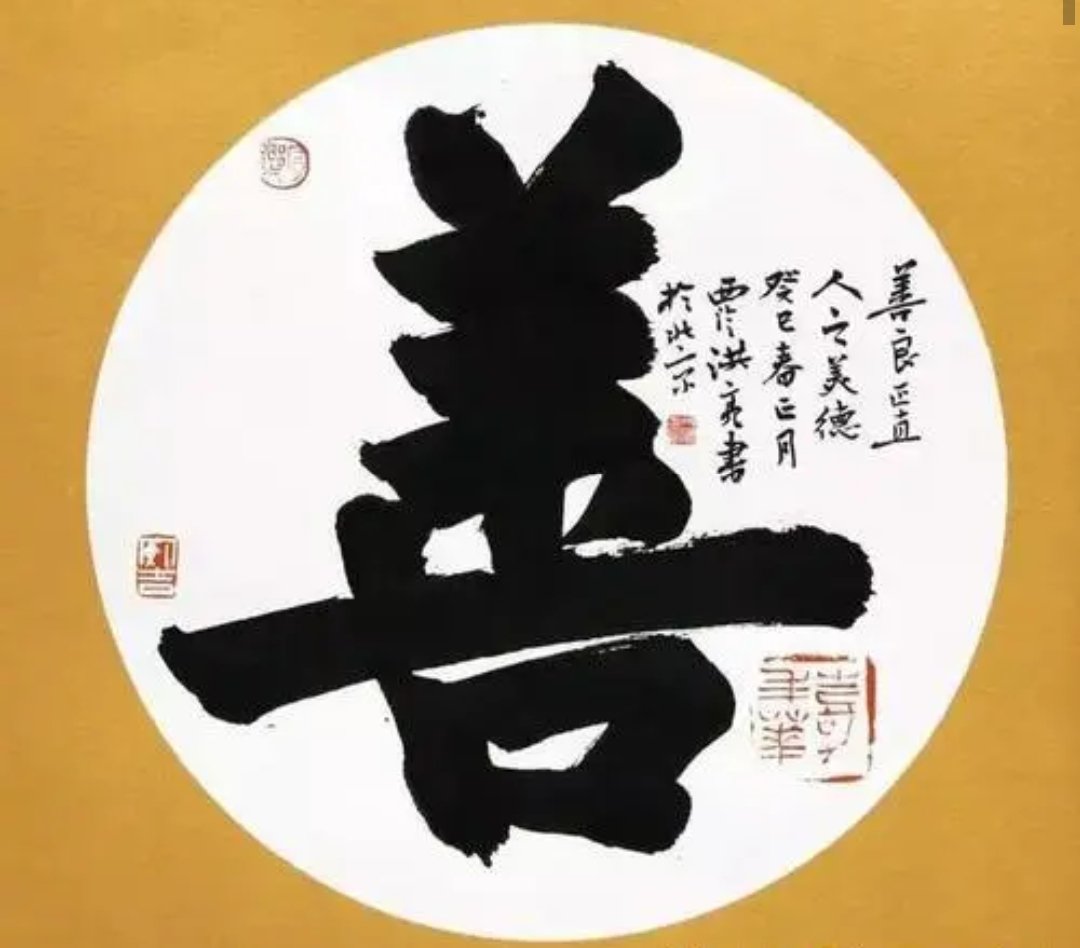 善
善良正直
人之美德
癸巳春正月
洪亮书
於北京